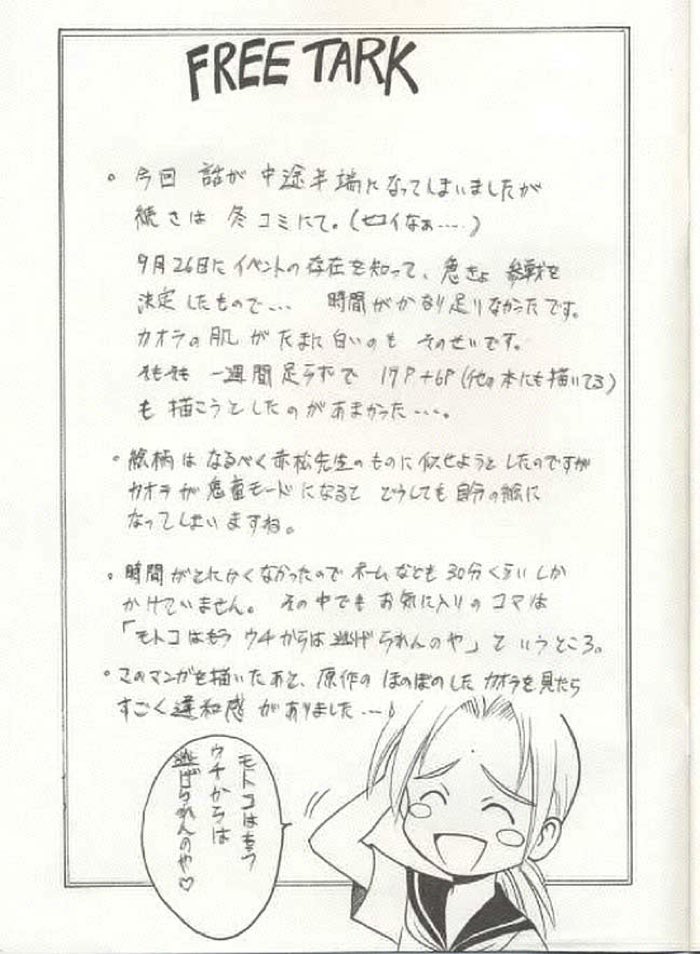 FREE TARK
・今回 話が 中途半端になってしまいましたが
続きは 冬コミにて。(セコイなぁ……)
9月26日にイベントの存在を知って、急きょ 参戦を
決定したもので… 時間がかなり足りなかったです。
カオラの肌 がたまに白いのも そのせいです。
そもそも 一週間足らずで 17P+6P(他の本にも描いてる)
も 描こうとしたのがあまかった…。
・絵柄は なるべく赤松先生のものに似せようとしたのですが
カオラが鬼畜モードになると どうしても自分の絵に
なってしまいますね。
・時間がとにかくなかったので ネームなども30分くらいしか
かけていません。 その中でもお気に入りのコマは
「モトコはもう ウチからは逃げられんのや」というところ。
・このマンガを描いたあと、原作の ほのぼのした カオラを見たら
すごく違和感がありました…♪
モトコはもう
ウチからは
逃げられんのや♡